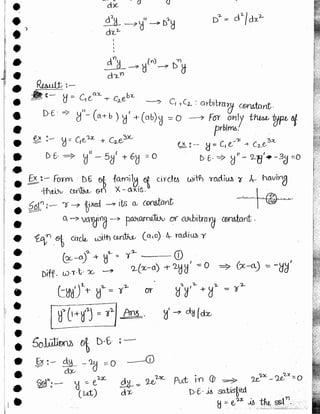 dx
d²y/dx² → y'' → D²y    D² = d²/dx²
dⁿy/dxⁿ → y⁽ⁿ⁾ → Dⁿy
Result :-
:- y = C₁e^ax + C₂e^bx → C₁, C₂ : arbitrary constant.
D·E ⇒ y'' - (a+b)y' + (ab)y = 0 → For only these type of prblms!
ex :- y = C₁e^2x + C₂e^3x    ex :- y = C₁e^-x + C₂e^3x
D·E ⇒ y'' - 5y' + 6y = 0    D·E ⇒ y'' - 2y' - 3y = 0
Ex :- Form DE of family of circles with radius r & having
their centre on X-axis.
Sol^n :- r → fixed → its a constant
a → varying → parameter or arbitrary constant.
Eq^n of circle with centre (a,0) & radius r
(x-a)² + y² = r² — ①
Diff. w.r.t. x → 2(x-a) + 2yy' = 0 ⇒ (x-a) = -yy'
(-yy')² + y² = r² or y²y'² + y² = r²
y²(1+y'²) = r² Ans. y' → dy/dx
Solutions of D·E :-
Ex :- dy/dx - 2y = 0 — ①
Sol^n :- y = e^2x (let) dy/dx = 2e^2x Put in ① ⇒ 2e^2x - 2e^2x = 0
D·E is satisfied
y = e^2x is the sol^n.